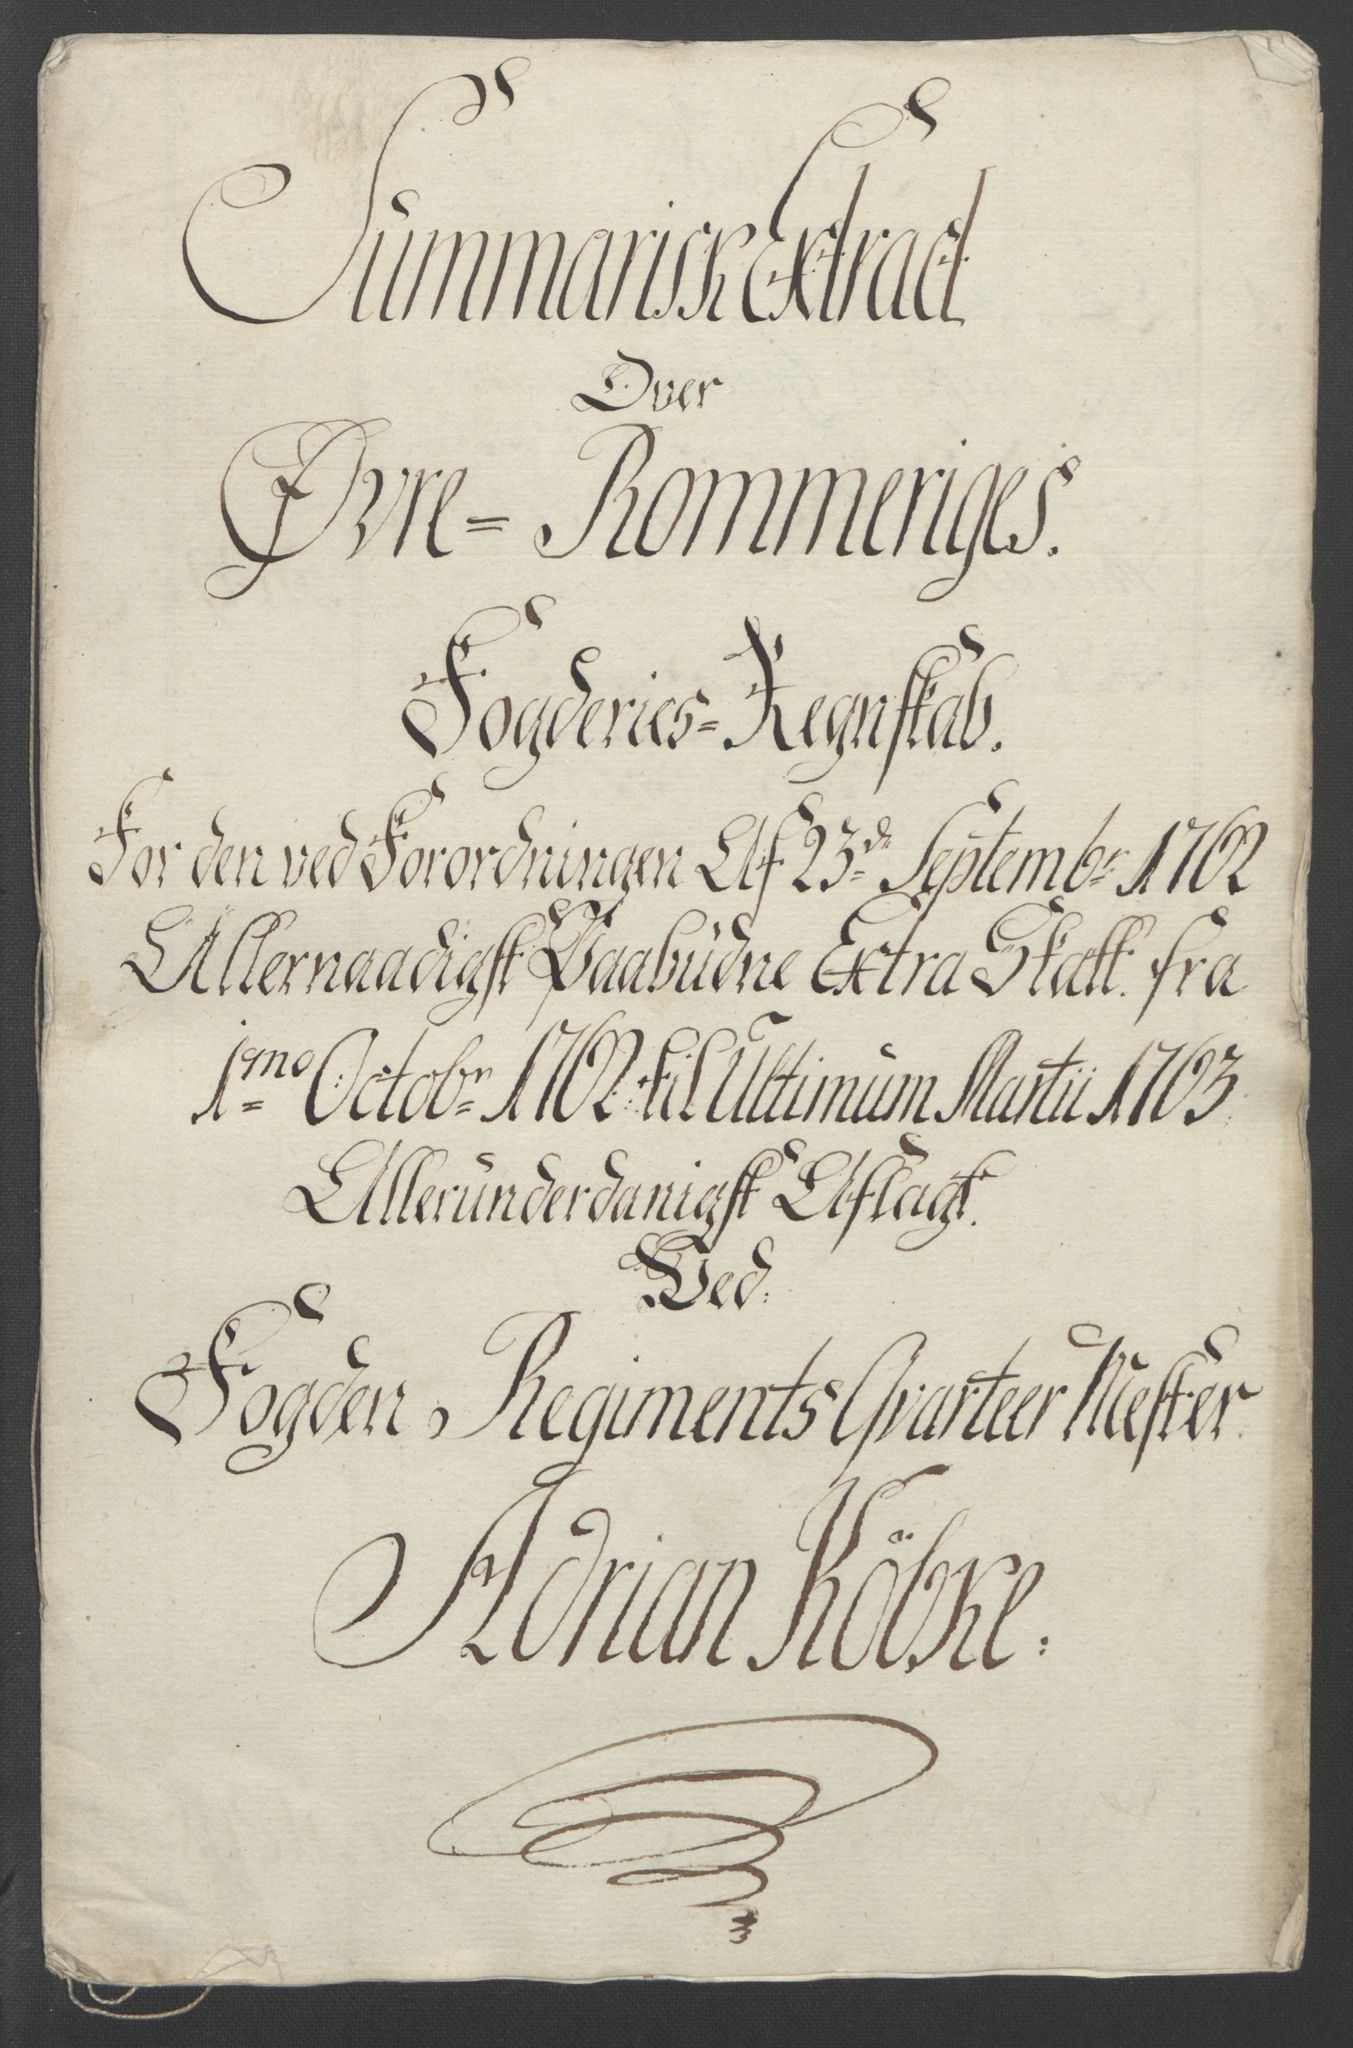 Summarisk Extract
Over
Øvre= Rommeriges.
Fogderies= Regnskab.
For den ved Forordningen Af 23de Septembr 1762
Allernaadigst Paabudne Extra Skatt. fra
1mo Octobr 1762 til Ultimum Martii 1763
Allerunderdanigst Aflagt.
Ved:
Fogden, Regiments Qvarteer Mester.
Adrian Köbke.